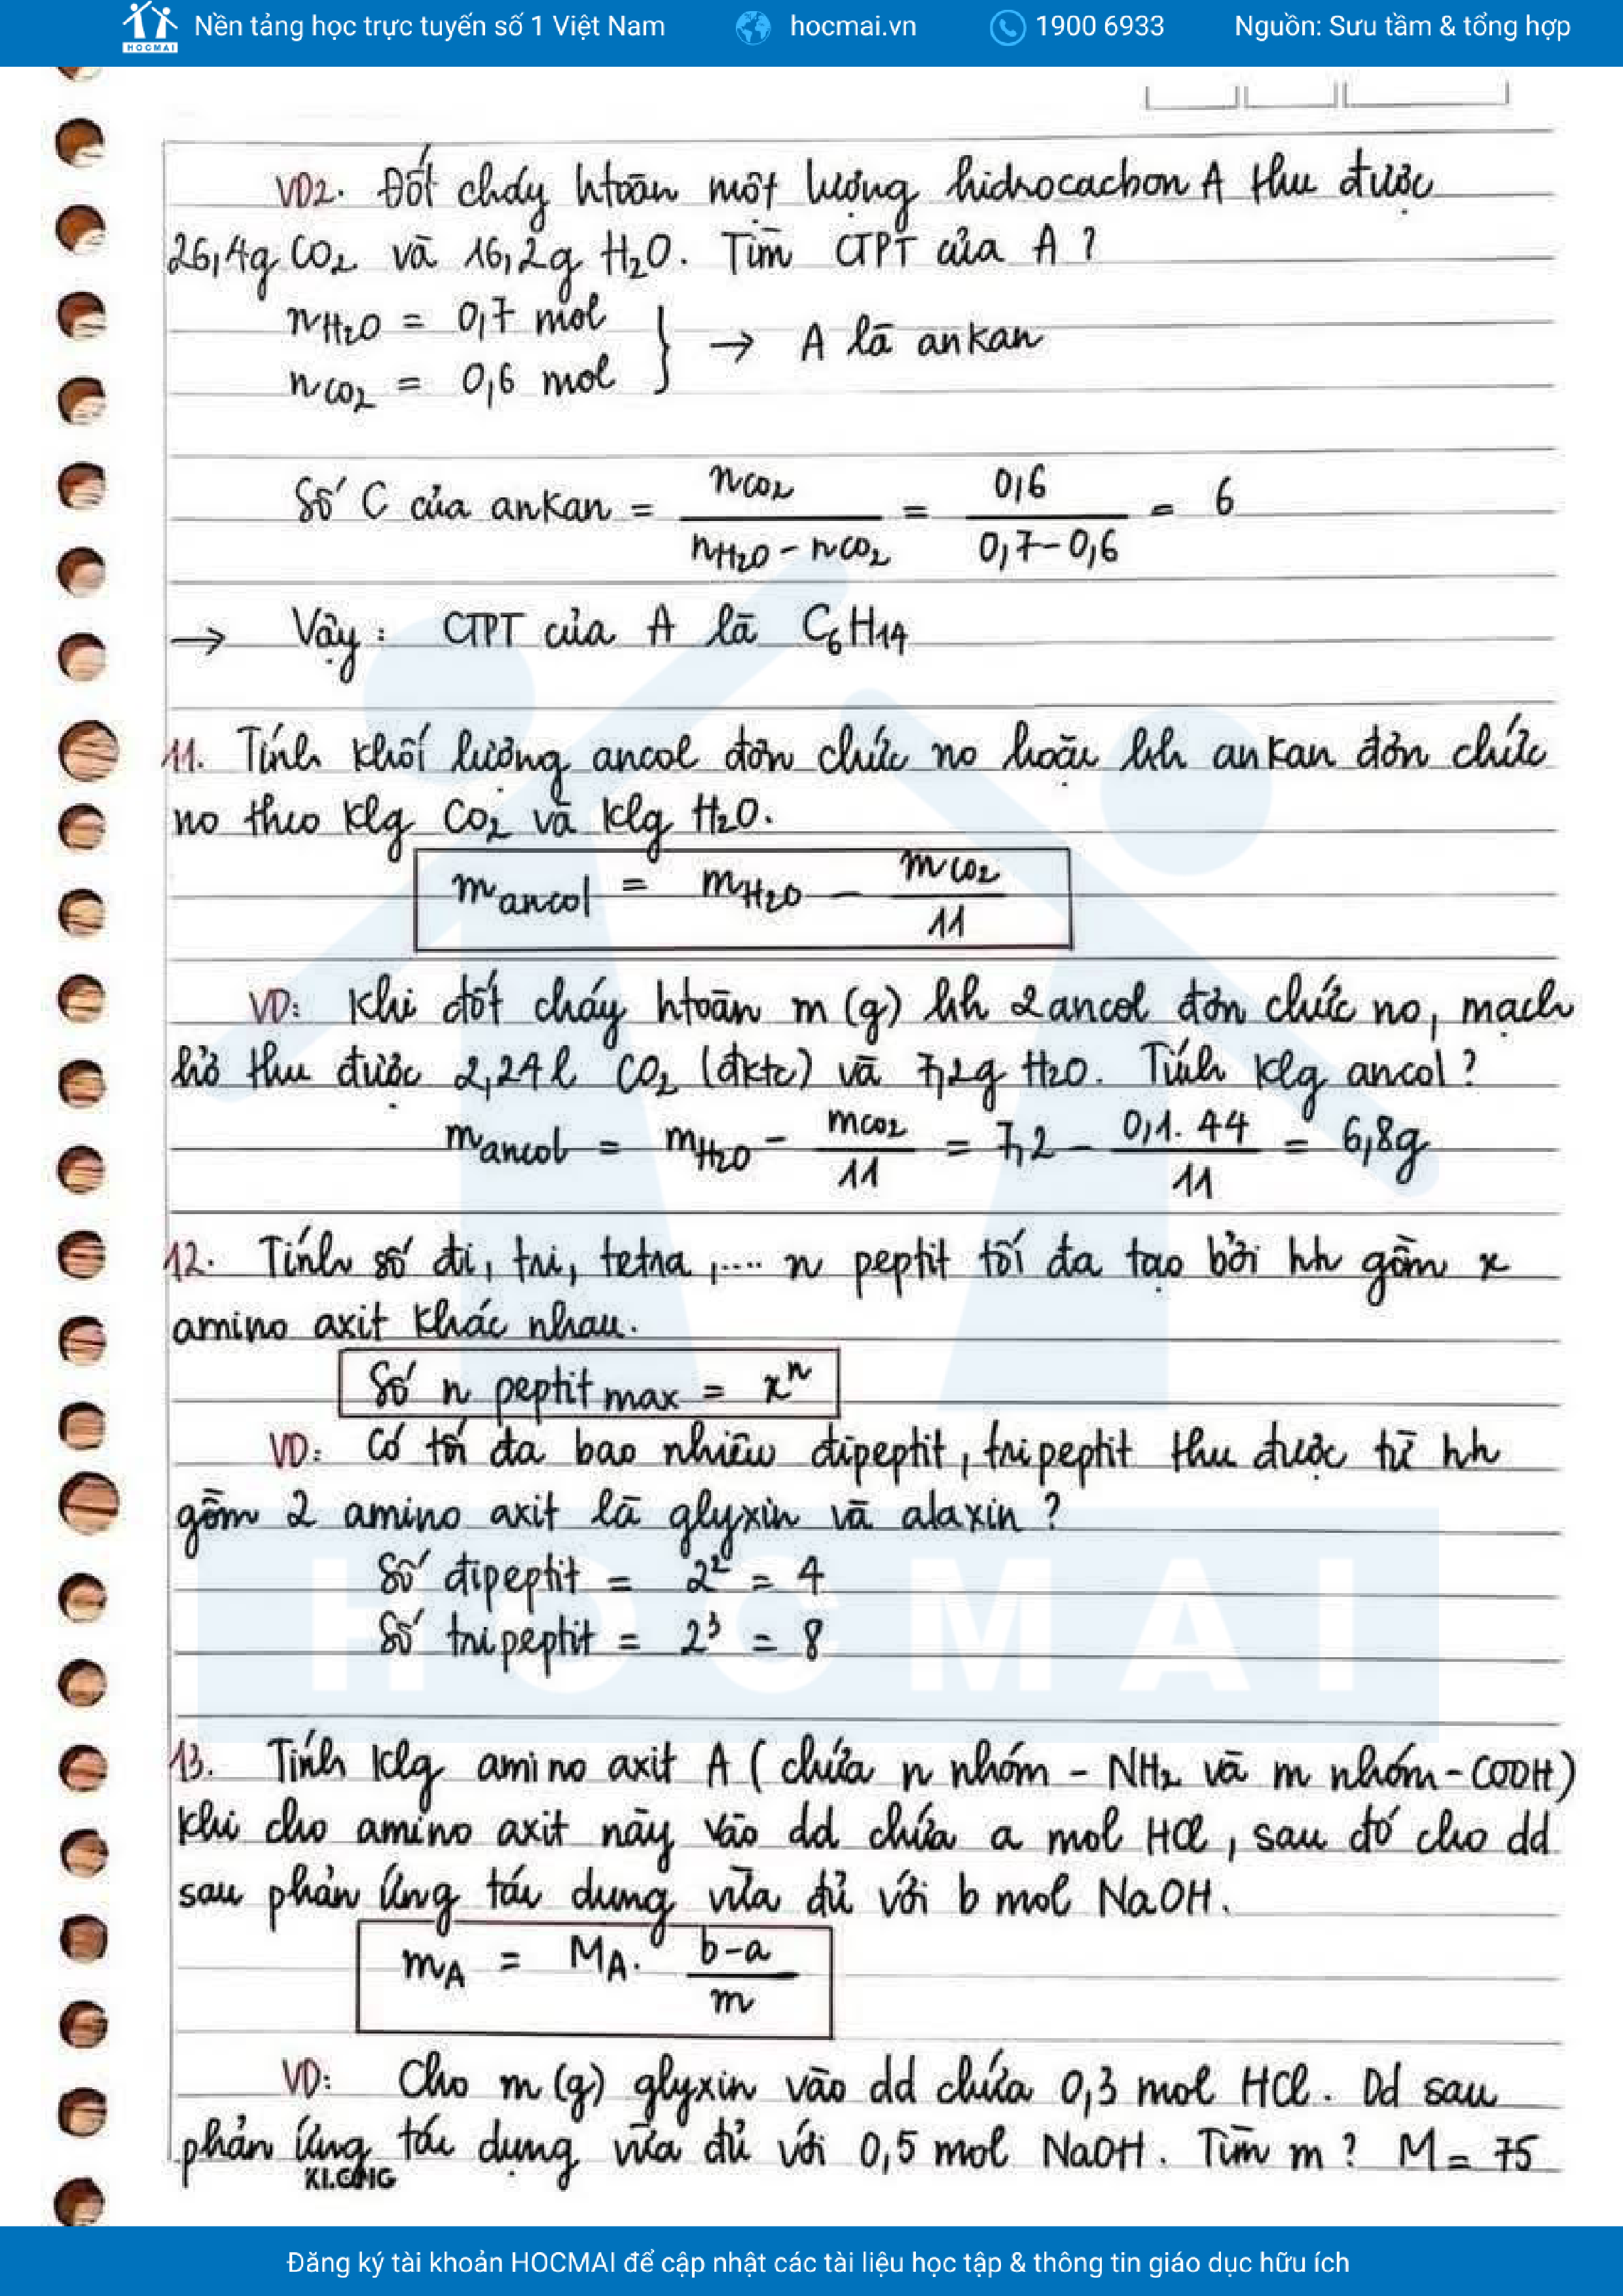 HOCMAI Nền tảng học trực tuyến số 1 Việt Nam hocmai.vn 1900 6933 Nguồn: Sưu tầm & tổng hợp
VD2. Đốt cháy htoàn một lượng hidrocacbon A thu được
26,4g CO2 và 16,2g H2O. Tìm CTPT của A?
nH2O = 0,7 mol
nCO2 = 0,6 mol } → A là ankan
Số C của ankan = nCO2 / (nH2O - nCO2) = 0,6 / (0,7-0,6) = 6
→ Vậy: CTPT của A là C6H14
11. Tính khối lượng ancol đơn chức no hoặc hh ankan đơn chức
no theo klg CO2 và klg H2O.
m ancol = mH2O - mCO2 / 11
VD: Khi đốt cháy htoàn m (g) hh 2 ancol đơn chức no, mạch
hở thu được 2,24l CO2 (đktc) và 7,2g H2O. Tính klg ancol?
m ancol = mH2O - mCO2 / 11 = 7,2 - 0,1.44 / 11 = 6,8g
12. Tính số đi, tri, tetra,.... n peptit tối đa tạo bởi hh gồm x
amino axit khác nhau.
Số n peptit max = xⁿ
VD: Có tối đa bao nhiêu đipeptit, tripeptit thu được từ hh
gồm 2 amino axit là glyxin và alaxin?
Số đipeptit = 2² = 4
Số tripeptit = 2³ = 8
HOCMAI
13. Tính klg amino axit A (chứa n nhóm - NH2 và m nhóm - COOH)
khi cho amino axit này vào dd chứa a mol HCl, sau đó cho dd
sau phản ứng tác dung vừa đủ với b mol NaOH.
mA = MA. b-a / m
VD: Cho m (g) glyxin vào dd chứa 0,3 mol HCl. Dd sau
phản ứng tác dụng vừa đủ với 0,5 mol NaOH. Tìm m? M = 75
Đăng ký tài khoản HOCMAI để cập nhật các tài liệu học tập & thông tin giáo dục hữu ích